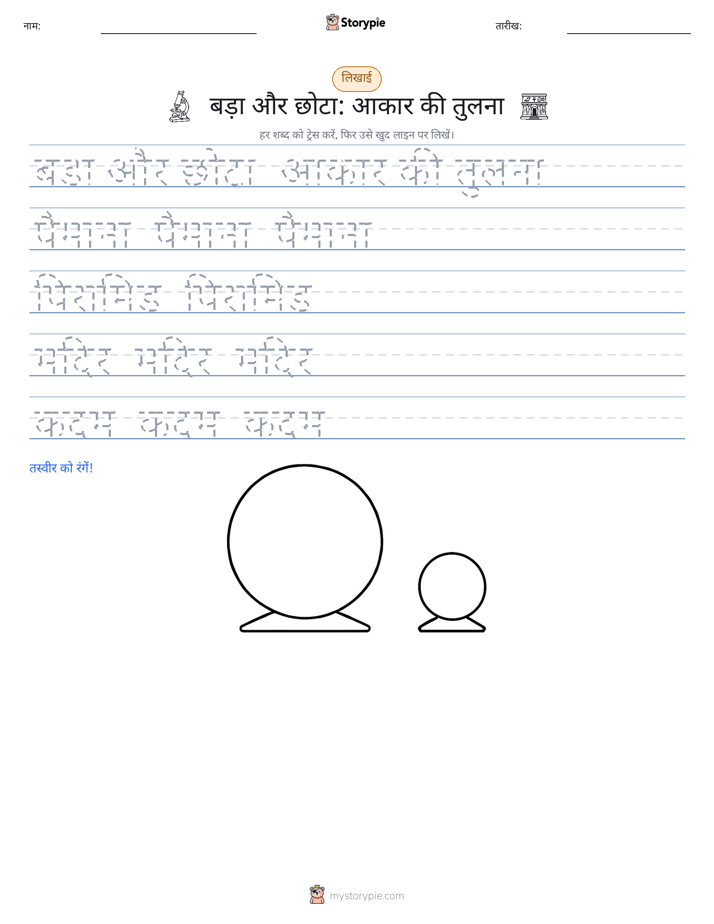 नाम:
Storypie
तारीख:
लिखाई
बड़ा और छोटा: आकार की तुलना
हर शब्द को ट्रेस करें, फिर उसे खुद लाइन पर लिखें।
बड़ा और छोटा आकार की तुलना
पैमाना पैमाना पैमाना
पिरामिड पिरामिड
मंदिर मंदिर मंदिर
कदम कदम कदम
तस्वीर को रंगें!
mystorypie.com